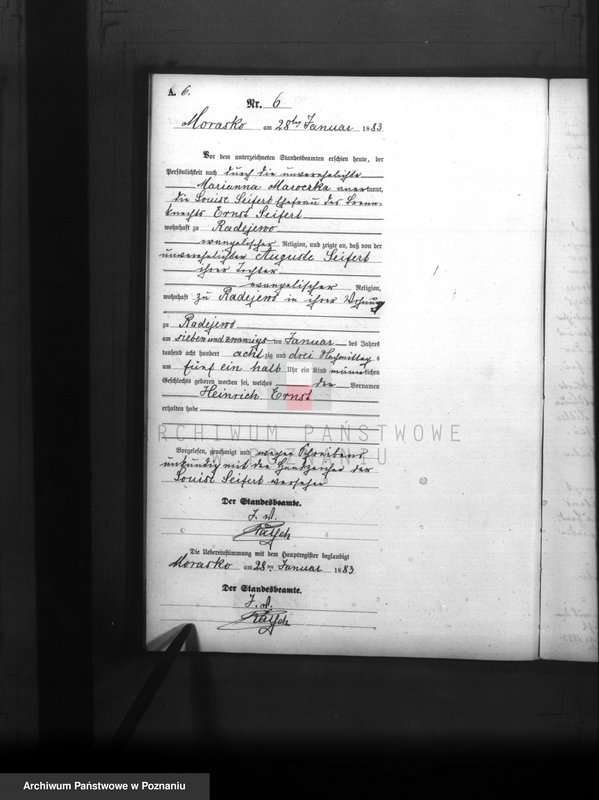 A. 6.
Nr. 6
Morasko am 28ten Januar 1883
Vor dem unterzeichneten Standesbeamten erschien heute, der
Persönlichkeit nach durch die unverehelichte
Marianna anerkannt,
die Louise Seifert Ehefrau des Brenn-
knechts Ernst Seifert
wohnhaft zu Radejewo
evangelischer Religion, und zeigte an, daß von der
unverehelichten Auguste Seifert
ihrer Tochter
evangelischer Religion,
wohnhaft zu Radejewo in ihrer Wohnung
zu Radejewo
am sieben und zwanzigsten Januar des Jahres
tausend acht hundert achtzig und drei Nachmittags
um fünf ein halb Uhr ein Kind männlichen
Geschlechts geboren worden sei, welches den Vornamen
Heinrich Ernst
erhalten habe
ARCHIWUM PAŃSTWOWE
W POZNANIU
Vorgelesen, genehmigt und wegen Schreibens
unkundig mit den Handzeichen der
Louise Seifert versehen
Der Standesbeamte.
I. V.
Die Uebereinstimmung mit dem Hauptregister beglaubigt
Morasko am 28ten Januar 1883
Der Standesbeamte.
I. V.
Archiwum Państwowe w Poznaniu